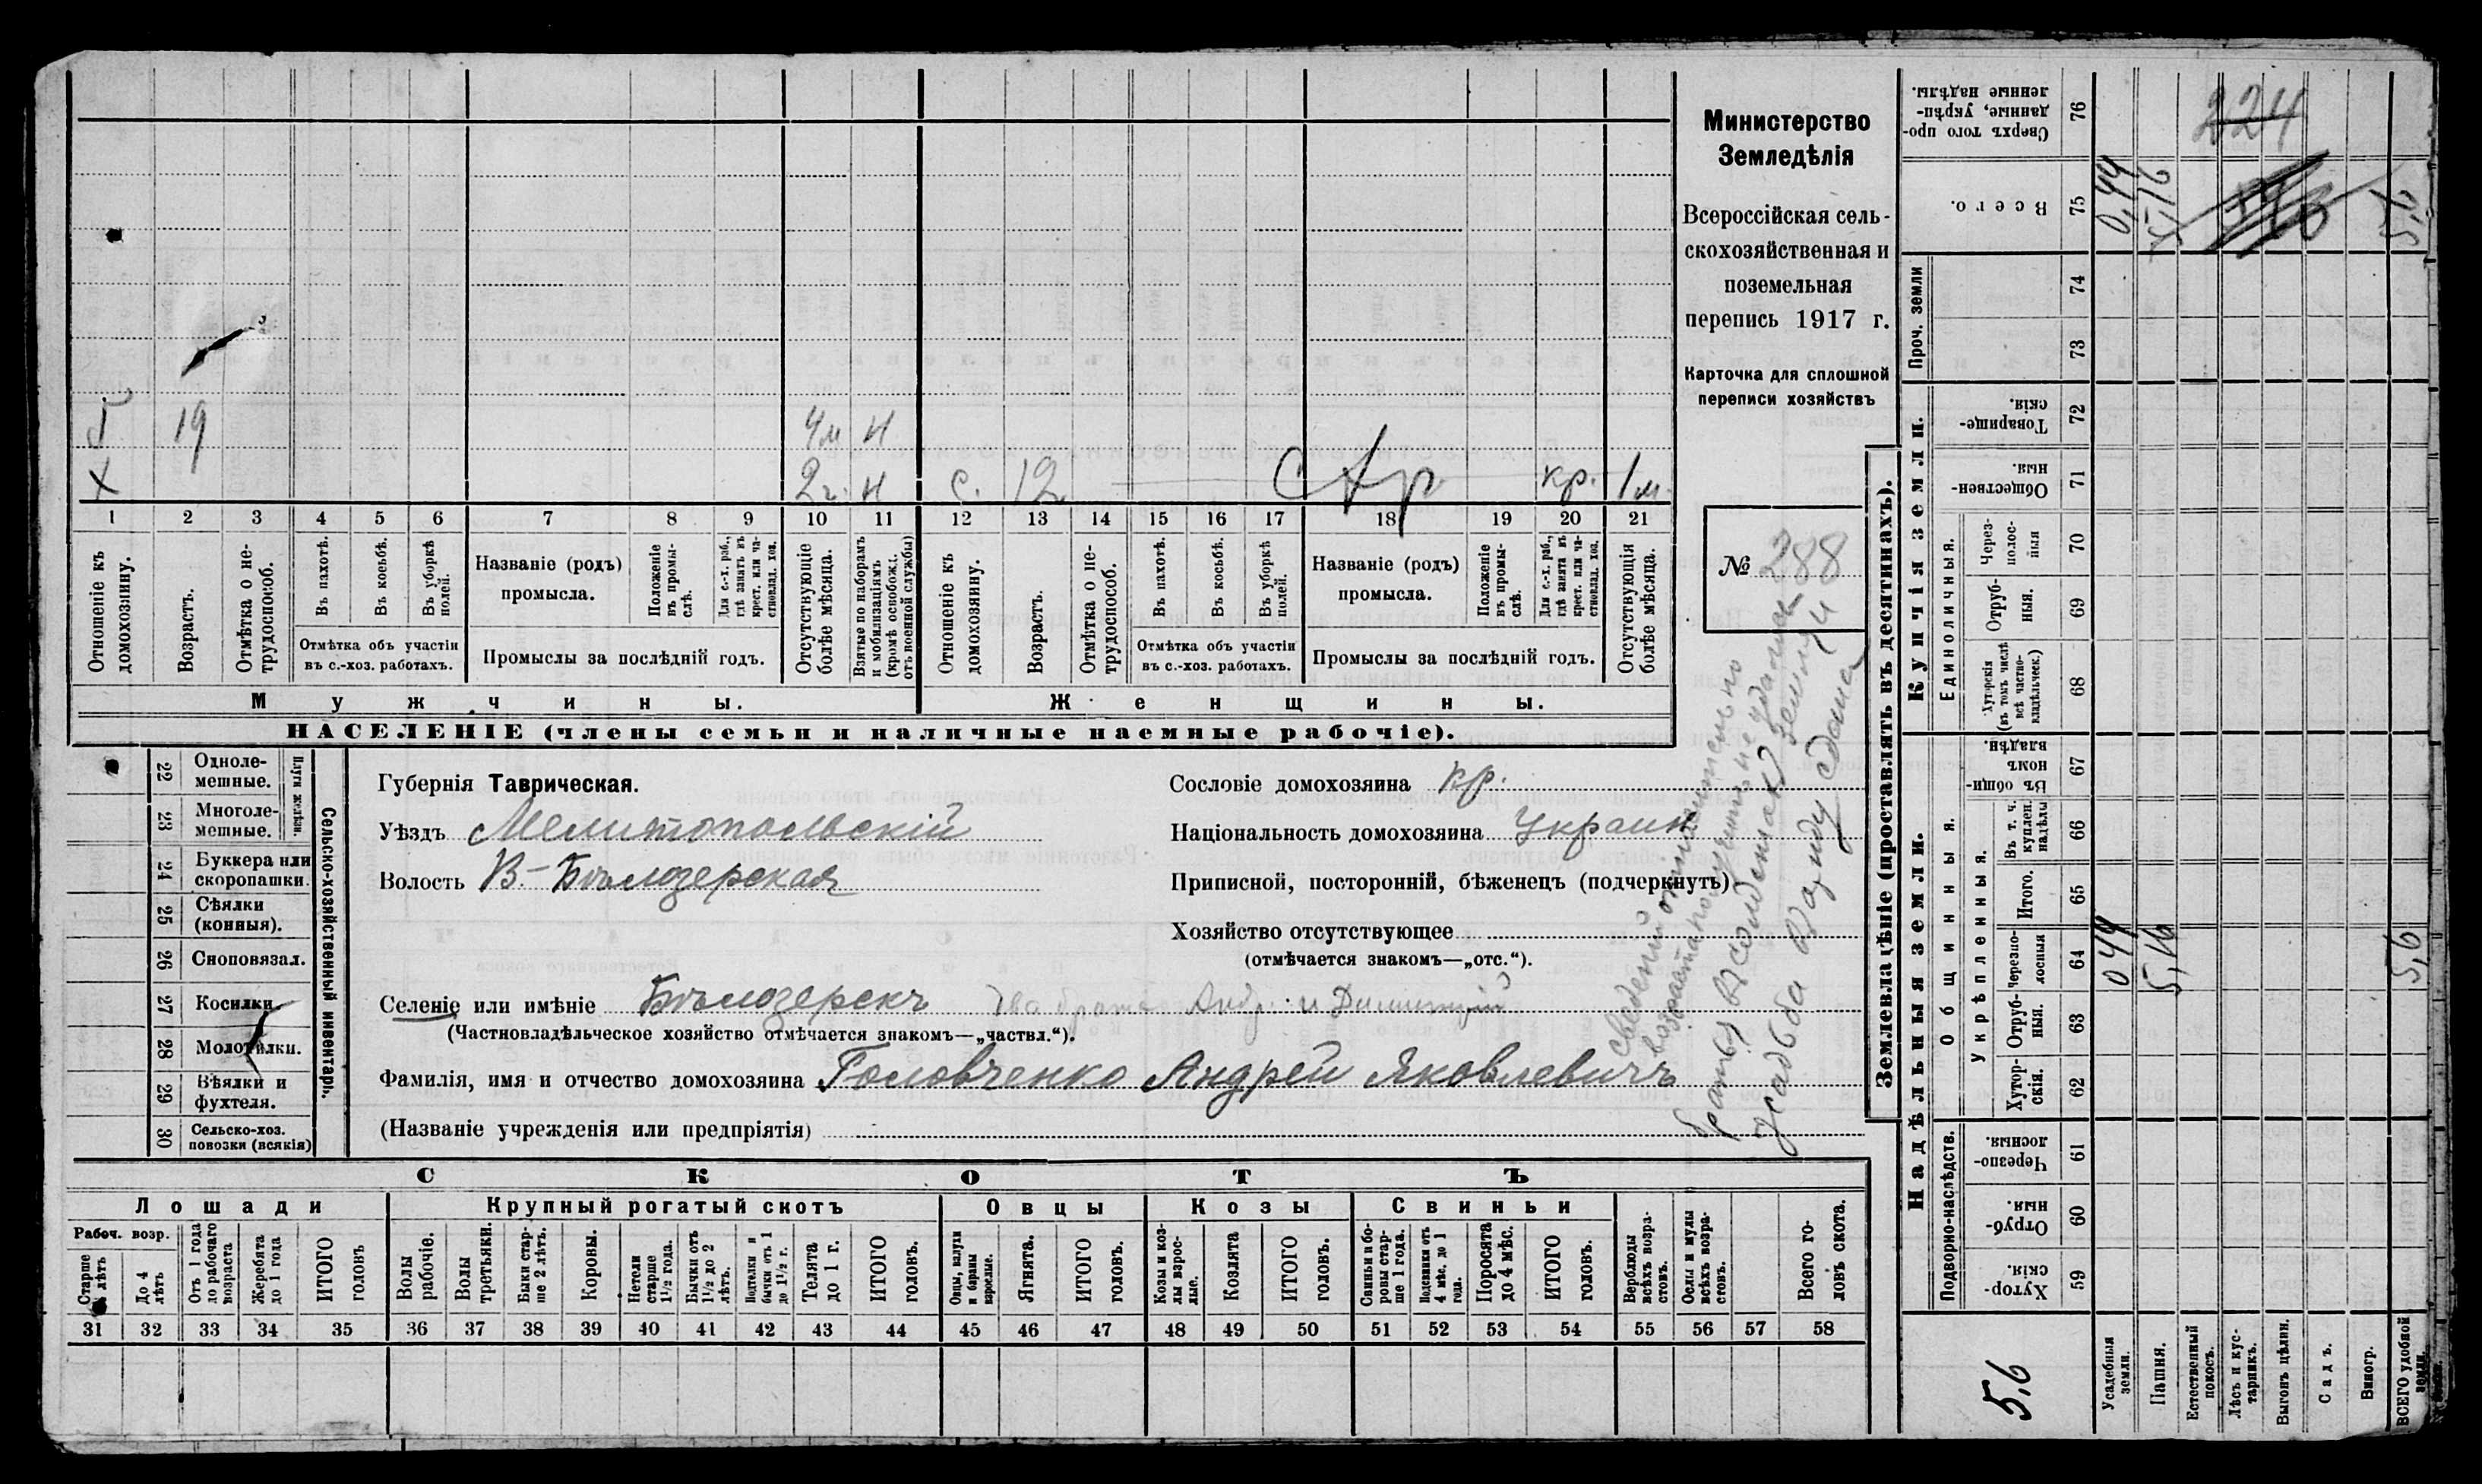 Министерство
Земледѣлія
Всероссійская сель-
скохозяйственная и
поземельная
перепись 1917 г.
Карточка для сплошной
переписи хозяйствъ
№ 288
Б 19 4м н
Х 2г. н с. 12 стр кр. 1м.
1 2 3 4 5 6 7 8 9 10 11 12 13 14 15 16 17 18 19 20 21
Отношеніе къ домохозяину.
Возрастъ.
Отмѣтка о не-трудоспособ.
Въ пахотѣ.
Въ косьбѣ.
Въ уборкѣ полей.
Отмѣтка объ участіи
въ с.-хоз. работахъ.
Названіе (родъ)
промысла.
Положеніе въ промыслѣ.
Для с.-х. раб., гдѣ занятъ въ крест. или частновлад. хоз.
Промыслы за послѣдній годъ.
Отсутствующіе болѣе мѣсяца.
Взятые по наборамъ и мобилизаціямъ (кромѣ освобожд. отъ военной службы)
Отношеніе къ домохозяину.
Возрастъ.
Отмѣтка о не-трудоспособ.
Въ пахотѣ.
Въ косьбѣ.
Въ уборкѣ полей.
Отмѣтка объ участіи
въ с.-хоз. работахъ.
Названіе (родъ)
промысла.
Положеніе въ промыслѣ.
Для с.-х. раб., гдѣ занята въ крест. или частновлад. хоз.
Промыслы за послѣдній годъ.
Отсутствующія болѣе мѣсяца.
Мужчины. Женщины.
НАСЕЛЕНІЕ (члены семьи и наличные наемные рабочіе).
Сельско-хозяйственный инвентарь.
Плуги желѣзн.
22 Одноле-мешные.
23 Многоле-мешные.
24 Буккера или скоропашки.
25 Сѣялки (конныя).
26 Сноповязал.
27 Косилки.
28 Молотилки.
29 Вѣялки и фухтеля.
30 Сельско-хоз. повозки (всякія)
Губернія Таврическая.
Уѣздъ Мелитопольскій
Волость В-Бѣлозерская
Сословіе домохозяина кр.
Національность домохозяина Украин
Приписной, посторонній, бѣженецъ (подчеркнуть)
Хозяйство отсутствующее
(отмѣчается знакомъ—„отс.“).
Селеніе или имѣніе Бѣлозерскъ два брата Андр. и Димитрій
(Частновладѣльческое хозяйство отмѣчается знакомъ—„частвл.“).
Фамилія, имя и отчество домохозяина Головченко Андрей Яковлевичъ
(Названіе учрежденія или предпріятія)
усадьба въ аренду сдана
СКОТЪ
Лошади Крупный рогатый скотъ Овцы Козы Свиньи
Рабоч. возр.
Старше лѣтъ
До 4 лѣтъ
Отъ 1 года до рабочаго возраста
Жеребята до 1 года
ИТОГО головъ
Волы рабочіе.
Волы третьяки.
Быки стар-ше 2 лѣтъ.
Коровы.
Нетели старше 1½ года.
Бычки отъ 1½ до 2 лѣтъ.
Подтелки и бычки отъ 1 до 1½ г.
Телята до 1 г.
ИТОГО головъ.
Овцы, валухи и бараны взрослые.
Ягнята.
ИТОГО головъ.
Козы и козлы взрослые.
Козлята
ИТОГО головъ.
Свиньи и боровы старше 1 года.
Подсвинки отъ 4 мѣс. до 1 года.
Поросята до 4 мѣс.
ИТОГО головъ.
Верблюды всѣхъ возрастовъ.
Ослы и мулы всѣхъ возрастовъ.
Всего го-ловъ скота.
31 32 33 34 35 36 37 38 39 40 41 42 43 44 45 46 47 48 49 50 51 52 53 54 55 56 57 58
Землевладѣніе (проставлять въ десятинахъ).
Надѣльныя земли. Купчія земли. Проч. земли
Подворно-наслѣдств.
Общинныя.
Укрѣпленныя.
Единоличныя.
Хутор-скія. 59
Отруб-ныя. 60
Черезпо-лосныя. 61
Хутор-скія. 62
Отруб-ныя. 63
Черезпо-лосныя 64 0 44 5,16 5,6
Итого. 65
Въ т. ч. куплен. надѣлы 66
Въ общин-номъ владѣн. 67
Хуторскія (въ томъ числѣ всѣ частно-владѣльческ.) 68
Отруб-ныя. 69
Через-полос-ныя 70
Обществен-ныя. 71
Товарище-скія. 72
73
74
Всего. 75 0,44 5,16 5,6
Сверхъ того про-данные, укрѣп-ленные надѣлы. 76 224
5,6
Усадебныя земли.
Пашня.
Естественный покосъ.
Лѣсъ и кус-тарникъ.
Выгонъ цѣлин.
Садъ.
Виногр.
ВСЕГО удобной земли.